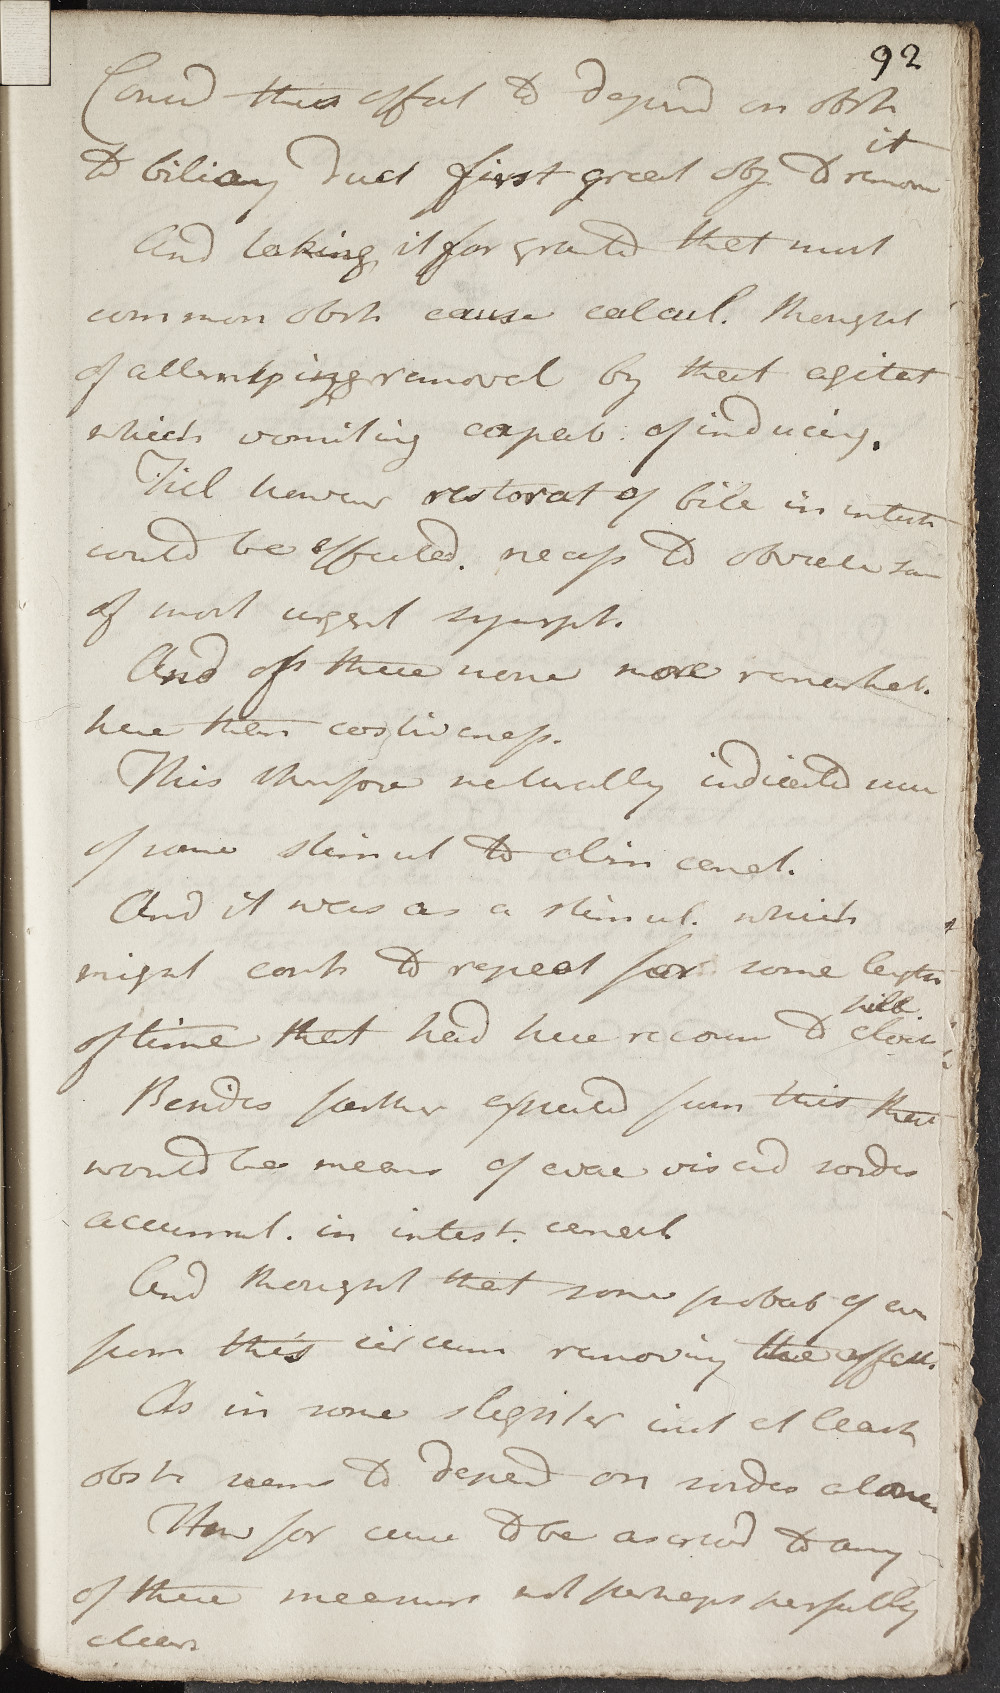 92
Consid this effect to depend on obstr
it
to biliary duct first great obj to remove
And taking it for granted that most
common obstr cause calcul. thought
of attempting removal by that agitat
which vomiting capab. of inducing.
Till however restorat of bile in intest
could be effected. necess to obviate som
of most urgent sympt.
And of these none more remarkab.
here than costiveness.
This therefore naturally indicated use
of some stimul to alim canal.
And it was as a stimul. which
might contin to repeat for some length
pill.
of time that had here recour to aloet
Besides farther expected from this that
would be means of evac viscid sordes
accumul. in intest. canal
And thought that some probab of even
from this circum removing the affect.
As in some slighter inst at least
obstr seems to depend on sordes alone.
How far cure to be ascribd to any
of these measures not perhaps perfectly
clear